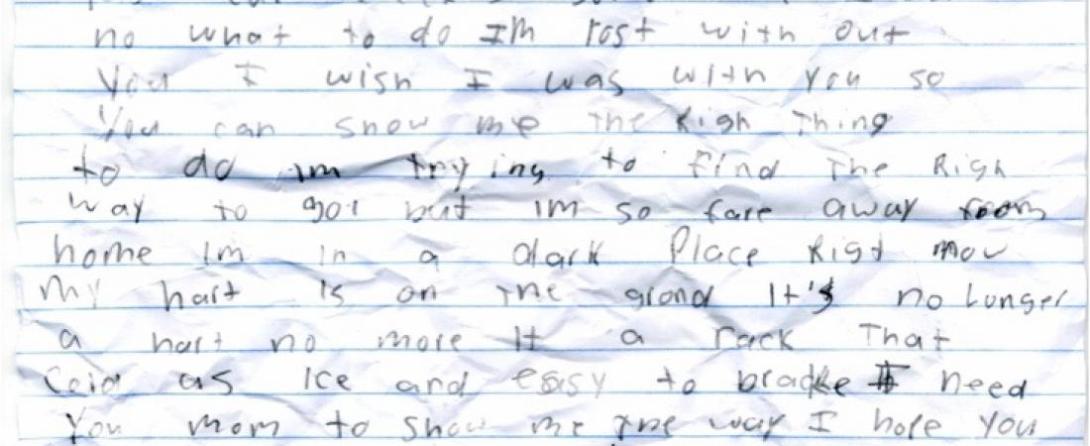 no what to do Im lost with out
You I wish I was with you so
You can show me the Righ Thing
to do im trying to find The Righ
way to goi but im so fare away from
home Im in a dark Place Rigt now
My hart is on the grond It's no Lunger
a hart no more It a rack That
Cold as Ice and easy to brake I need
You mom to show me the way I hope you